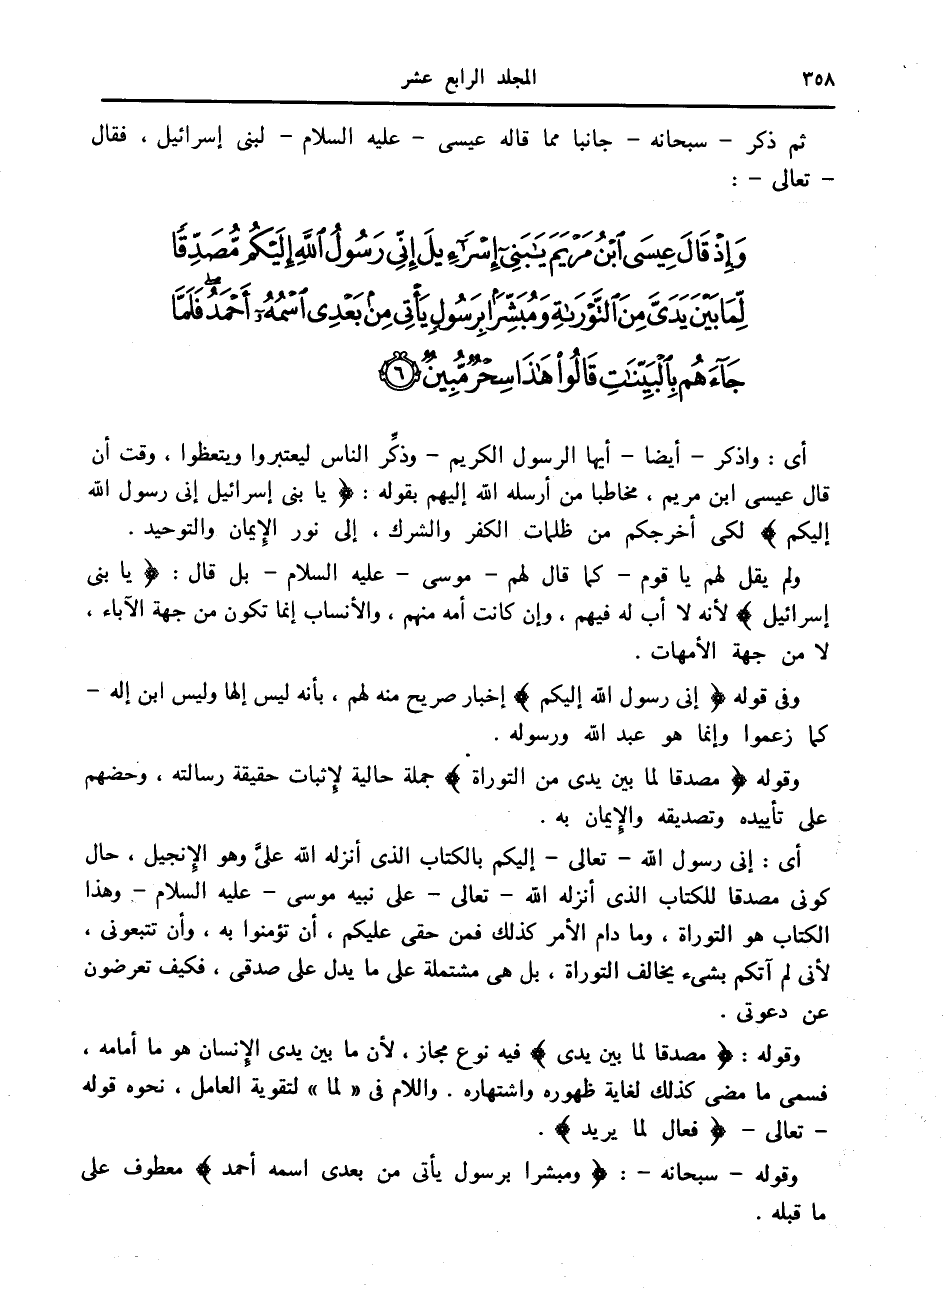 ٣٥٨ المجلد الرابع عشر
ثم ذكر – سبحانه – جانبا مما قاله عيسى – عليه السلام – لبنى إسرائيل ، فقال
– تعالى – :
وَإِذْ قَالَ عِيسَى ٱبْنُ مَرْيَمَ يَٰبَنِىٓ إِسْرَٰٓءِيلَ إِنِّى رَسُولُ ٱللَّهِ إِلَيْكُم مُّصَدِّقًا
لِّمَا بَيْنَ يَدَىَّ مِنَ ٱلتَّوْرَىٰةِ وَمُبَشِّرًۢا بِرَسُولٍ يَأْتِى مِنۢ بَعْدِى ٱسْمُهُۥٓ أَحْمَدُ ۖ فَلَمَّا
جَآءَهُم بِٱلْبَيِّنَٰتِ قَالُوا۟ هَٰذَا سِحْرٌ مُّبِينٌ ٦
أى : واذكر – أيضا – أيها الرسول الكريم – وذكِّر الناس ليعتبروا ويتعظوا ، وقت أن
قال عيسى ابن مريم ، مخاطبا من أرسله الله إليهم بقوله : ﴿ يا بنى إسرائيل إنى رسول الله
إليكم ﴾ لكى أخرجكم من ظلمات الكفر والشرك ، إلى نور الإيمان والتوحيد .
ولم يقل لهم يا قوم – كما قال لهم – موسى – عليه السلام – بل قال : ﴿ يا بنى
إسرائيل ﴾ لأنه لا أب له فيهم ، وإن كانت أمه منهم ، والأنساب إنما تكون من جهة الآباء ،
لا من جهة الأمهات .
وفى قوله ﴿ إنى رسول الله إليكم ﴾ إخبار صريح منه لهم ، بأنه ليس إلها وليس ابن إله –
كما زعموا وإنما هو عبد الله ورسوله .
وقوله ﴿ مصدقا لما بين يدى من التوراة ﴾ جملة حالية لإثبات حقيقة رسالته ، وحضهم
على تأييده وتصديقه والإيمان به .
أى : إنى رسول الله – تعالى – إليكم بالكتاب الذى أنزله الله علىَّ وهو الإنجيل ، حال
كونى مصدقا للكتاب الذى أنزله الله – تعالى – على نبيه موسى – عليه السلام – وهذا
الكتاب هو التوراة ، وما دام الأمر كذلك فمن حقى عليكم ، أن تؤمنوا به ، وأن تتبعونى ،
لأنى لم آتكم بشىء يخالف التوراة ، بل هى مشتملة على ما يدل على صدقى ، فكيف تعرضون
عن دعوتى .
وقوله : ﴿ مصدقا لما بين يدى ﴾ فيه نوع مجاز ، لأن ما بين يدى الإنسان هو ما أمامه ،
فسمى ما مضى كذلك لغاية ظهوره واشتهاره . واللام فى « لما » لتقوية العامل ، نحوه قوله
– تعالى – ﴿ فعال لما يريد ﴾ .
وقوله – سبحانه – : ﴿ ومبشرا برسول يأتى من بعدى اسمه أحمد ﴾ معطوف على
ما قبله .